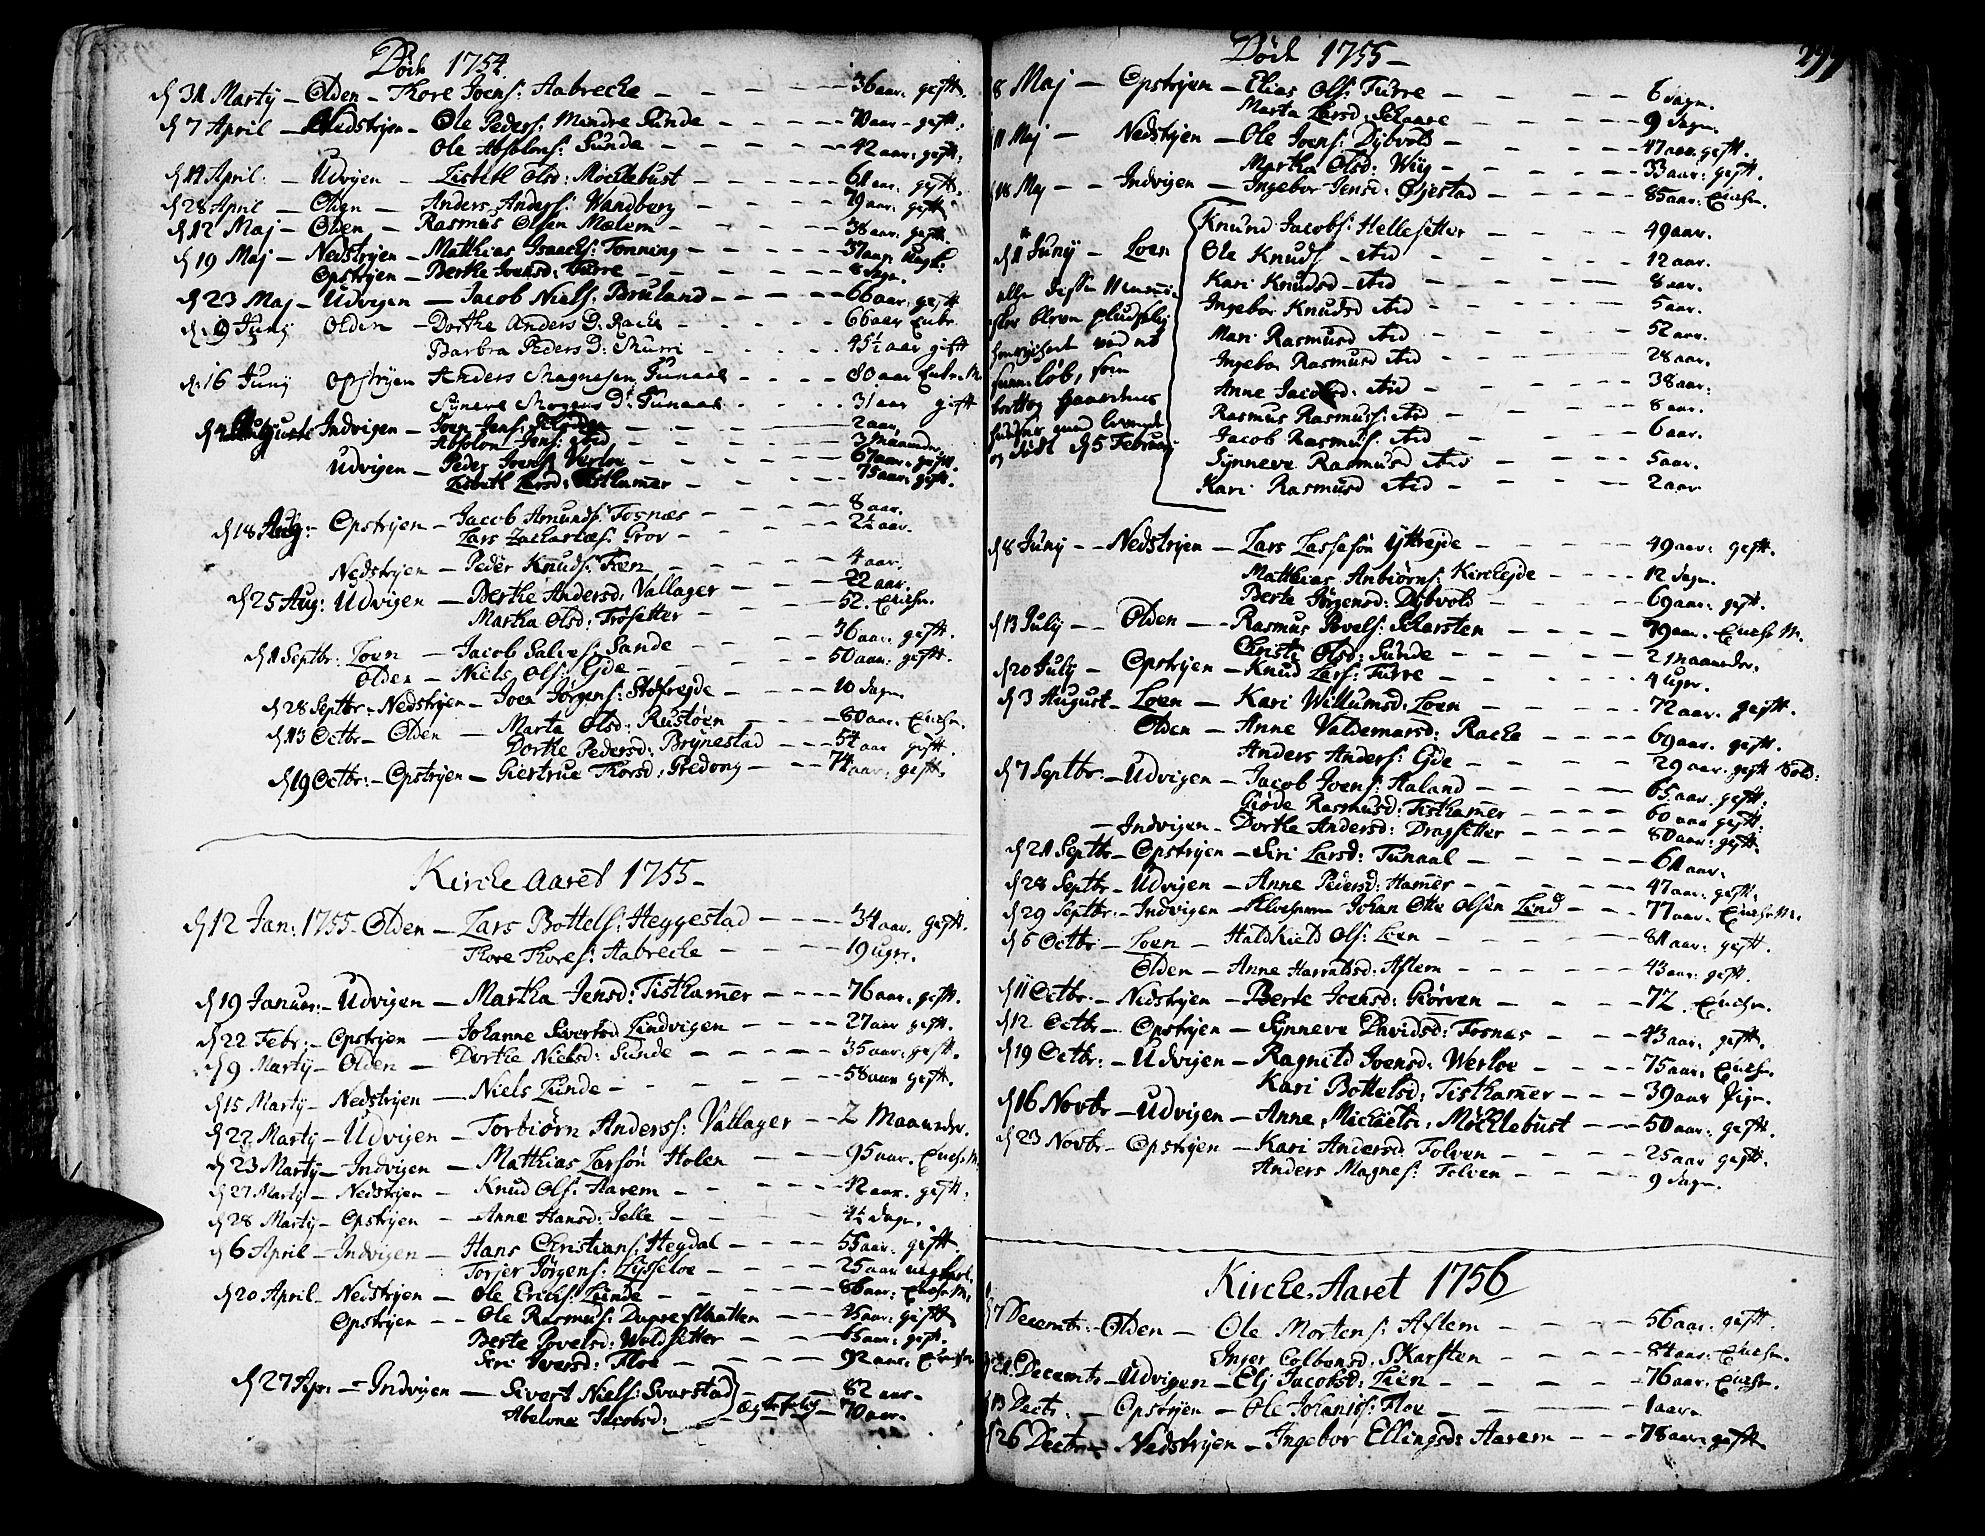 Död 1754
d 31 Martÿ – Olden – Thore Joens: Aabrecke – 36 aar: gift.
d 7 April – Nedstrÿen – Ole Peders: Mindre Sunde – 70 aar – gift:
Ole Absolons: Sunde – 42 aar: gift:
d 14 April: – Udvigen – Lisbeth Olsd: Möcklebust – 61 aar: gift.
d 28 April – Olden – Anders Anders: Wandberg – 79 aar: gift
d 12 Maj – Olden – Rasmus Olsen Mælem – 38 aar: gift.
d 19 Maj – Nedstrÿen – Matthias Isaachs: Tonning – 37 aar: ungk:
Opstrÿen – Berthe Ivensd: Furre – 8 dage.
d 23 Maj – Udvigen – Jacob Niels: Bruland – 66 aar: gift
d: 9 Junÿ Olden – Dorthe Anders D: Racke – 66 aar Enke
Barbra Peders D: Muri – 45½ aar gift
d: 16 Junÿ Opstrÿen Anders Magnesen Tunaal – 80 aar Enke M
Sÿnerv Mogens D: Tunaal – 31 aar gift
Indvigen – Joen Jens: – 2 aar,
Absolon Jens: ibid – 3 Maaneder
Udvigen – Peder Joens: Verloe – 67 aar: gift.
Lisbeth Larsd: Tisthamer – 75 aar: gift.
d 18 Aug: – Opstrÿen – Jacob Amunds: Fosnæs – 8 aar.
Lars Zachariæs: Grov – 2½ aar.
Nedstrÿen – Peder Knuds: Ræn – 4 aar:
d 25 Aug: Udvigen – Berthe Andersd: Vallager – 22 aar.
Martha Olsd: Frøsetter – 52. Encke.
d 1 Septbr: Loen – Jacob Salves: Sande – 36 aar: gift.
Olden – Niels Ols: Eÿde – 50 aar: gift.
d 28 Septbr: – Nedstrÿen – Joen Jørgens: Stofrejde – 10 dage
d 13 Octbr – Olden – Marta Olsd: Rustøen – 80 aar: Encke.
Dorthe Pedersd: Brÿnestad – 54 aar gift.
d 19 Octbr: – Opstrÿen – Giertrue Thorsd: Gredung – 74 aar: gift.
Kircke Aaret 1755 –
d 12 Jan: 1755 – Olden – Lars Bottels: Heggestad – 34 aar. gift.
Thore Thores: Aabrecke – 19 uger.
d 19 Januar: – Udvigen – Martha Jensd: Tisthamer – 76 aar: gift.
d 22 Febr: – Opstrÿen – Johanne Sivertsd Lindvigen – 27 aar gift.
d 9 Martÿ – Olden – Dorthe Nielsd: Sunde – 35 aar: gift.
d 15 Martÿ – Nedstrÿen – Niels Lunde – 58 aar gift.
d 22 Martÿ – Udvigen – Torbiørn Anderss: Vallager – 2 Maaneder.
d 23 Martÿ – Indvigen – Matthias Larsøn Holen – 95 aar. Encke M.
d 27 Martÿ – Nedstrÿen – Knud Ols: Aarem – 42 aar. gift.
d 28 Martÿ – Opstrÿen – Anne Hansd: Jelle – 4½ dage.
d 6 April – Indvigen – Hans Christians: Hegdal – 55 aar: gift
Torjer Jørgens: Lÿsseloe – 25 aar ungkarl.
d 20 April – Nedstrÿen – Ole Erichs: Lunde – 86 aar: Encke M:
Opstrÿen – Ole Rasmus: – 45 aar: gift
Berte Povelsd: Woldsetter – 65 aar: gift.
Siri Iversd: Floe – 92 aar: Encke
d 27 Apr: – Indvigen – Sivert Niels: Svarstad – 82 aar –
Abelone Jacobsd: – Ægtefolk – 70 aar –
Död 1755 –
277
8 Maj – Opstrÿen – Elias Ols: Furre – 6 dage.
Marta Larsd: Schaare – 9 dage.
11 Maj – Nedstrÿen – Ole Joens: Dÿbvold – 47 aar gift.
Martha Olsd: Wiig – 33 aar: gift.
d 18 Maj – Indvigen – Ingebor Jensd: Gjestad – 85 aar: Encke.
Knund Jacobs: Hellesetter – 49 aar.
d 1 Junÿ – Loen Ole Knuds – ibid – 12 aar.
alle disse Mennis- Kari Knudsd – ibid – 8 aar.
sker bleve pludselig Ingebor Knudsd ibid – 5 aar.
henrÿckt ved et Mari Rasmusd ibid – 52 aar.
løb, som Ingebor Rasmusd ibid – 28 aar.
borttog gaardenes Anne Jacobsd: ibid – 38 aar:
Rasmus Rasmuss: ibid – 8 aar.
og d 5 Februarij Jacob Rasmus: ibid – 6 aar.
Sÿnneve Rasmusd ibid – 5 aar.
Kari Rasmusd ibid – 2 aar
d 8 Junÿ – Nedstrÿen – Lars Lassesøn Ÿttrejde – 49 aar: gift.
Matthias Anbiørns: Kirckeÿde – 12 dage.
Berte Jørgensd: Dÿbvold – 69 aar: gift.
d 13 Julÿ – Olden – Rasmus Povels: Scharsten – 79 aar. Encke M.
Christi Olsd: Sunde – 2 maaneder.
d 20 Julÿ – Opstrÿen – Knud Lars: Furre – 4 uger.
d 3 August – Loen – Kari Willumsd: Loen – 72 aar. gift.
Olden – Anne Valdemarsd: Racke – 69 aar. gift.
Anders Anders: Eÿde – 29 aar. gift Sold:
d 7 Septbr: – Udvigen – Jacob Joens: Haland – 65 aar. gift.
Giøde Rasmusd: Tisthamer – 60 aar gift:
– Indvigen – Dorthe Andersd: Dragsetter – 80 aar: gift.
d 21 Septbr – Opstrÿen – Siri Larsd: Tunaal – 61 aar.
d 28 Septbr – Udvigen – Anne Pedersd: Hamer – 47 aar: gift.
d 29 Septbr: – Indvigen – Johan Otte Olsen Lind – 77 aar. Encke M.
d 5 Octbr: – Loen – Haldkield Ols: Loen – 81 aar: gift.
Olden – Anne Harraldsd: Aslem – 43 aar: gift.
d 11 Octbr. – Nedstrÿen – Berte Joensd: Giørven – 72. Encke.
d 12 Octbr – Opstrÿen – Sÿnneve Davidsd: Fosnæs – 43 aar: gift.
d 19 Octbr: – Udvigen – Ragnild Ivensd: Werloe – 75 aar, Encke.
Kari Bottelsd: Tisthamer – 39 aar Pige.
d 16 Novbr – Udvigen – Anne Michaelsd: Möcklebust – 50 aar: gift.
d 23 Novbr – Opstrÿen – Kari Andersd Folven – 25 aar gift.
Anders Magnes: Folven – 9 dage.
Kircke Aaret 1756
d 7 Decembr: – Olden – Ole Mortens: Aslem – 56 aar. gift.
Inger Colbensd: Skarsten – 84 aar: Encke.
d 21 Decembr – Udvigen – Elj Jacobsd: Lien – 76 aar: Encke.
d 13 Decbr. – Opstrÿen – Ole Johaniss: Floe – 1 aar.
d 26 Decbr – Nedstrÿen – Ingebor Ellingsd: Aarem – 78 aar: gift.